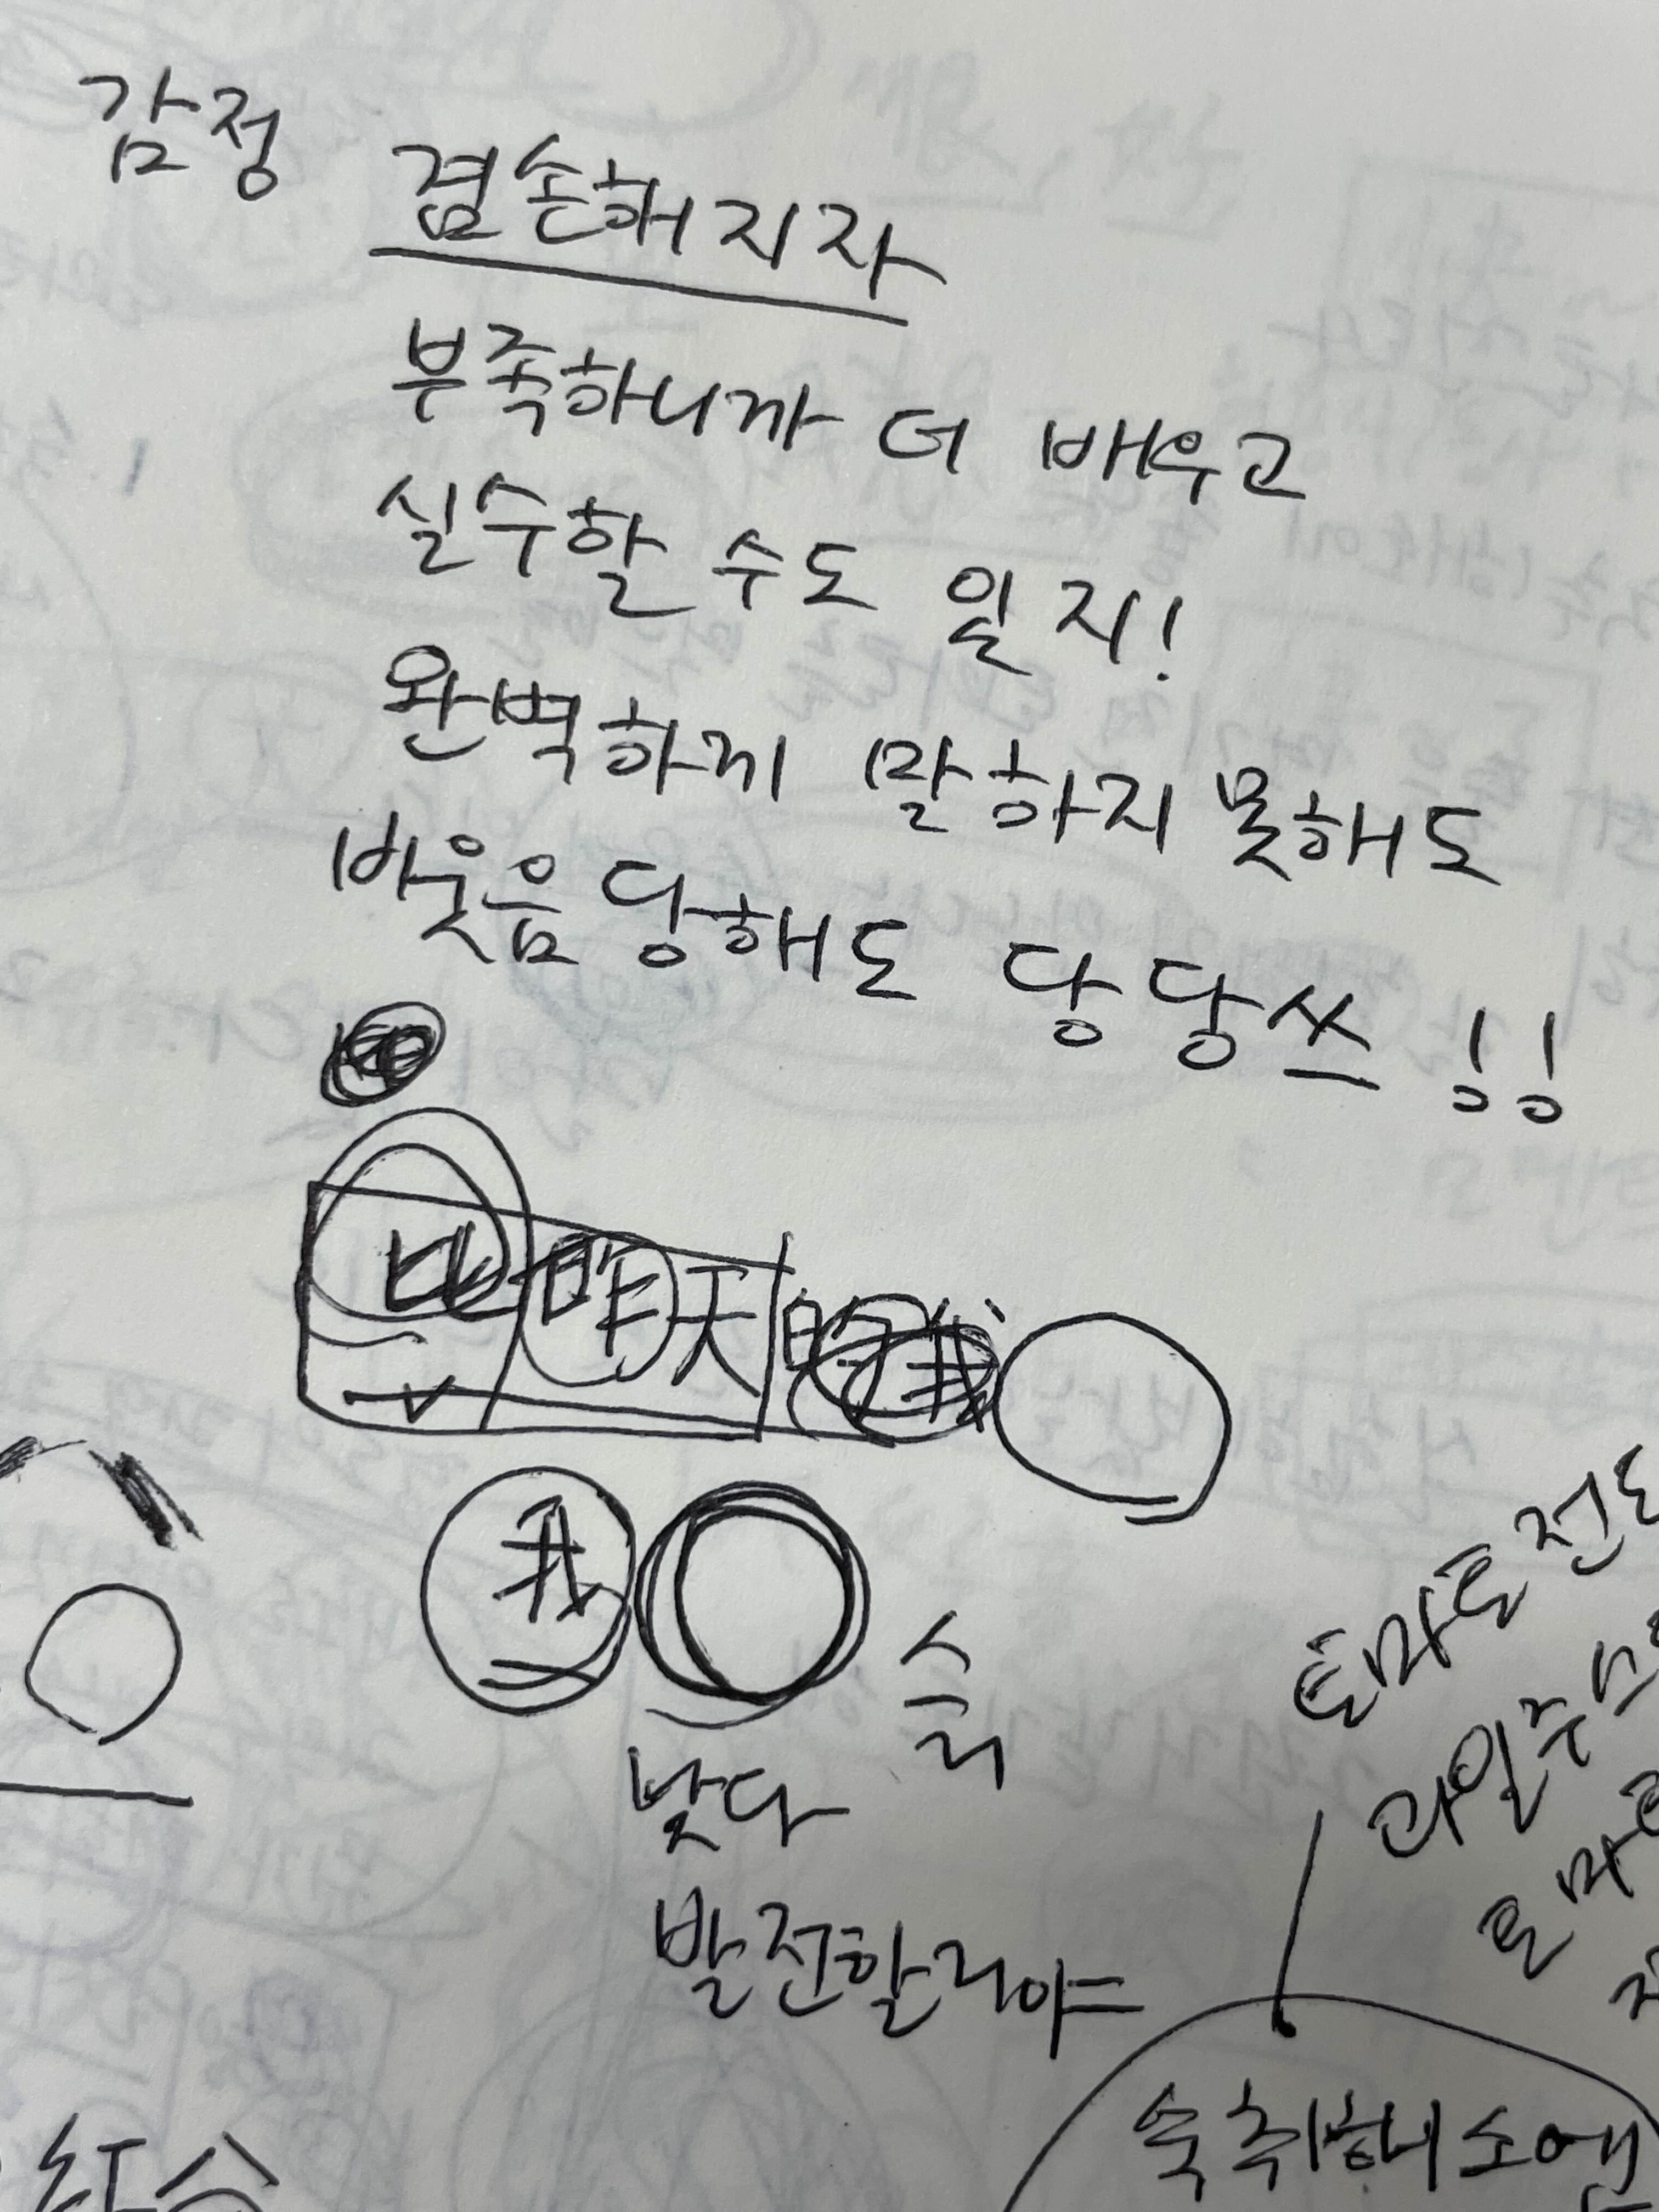 감정
겸손해지자
부족하니까 더 배우고
실수할 수도 있지!
완벽하게 말하지 못해도
비웃음 당해도 당당쓰!!
比 昨天 我
我
스
낮다
발전할거야
토마토
과일주스
토마토
숙취해소엔